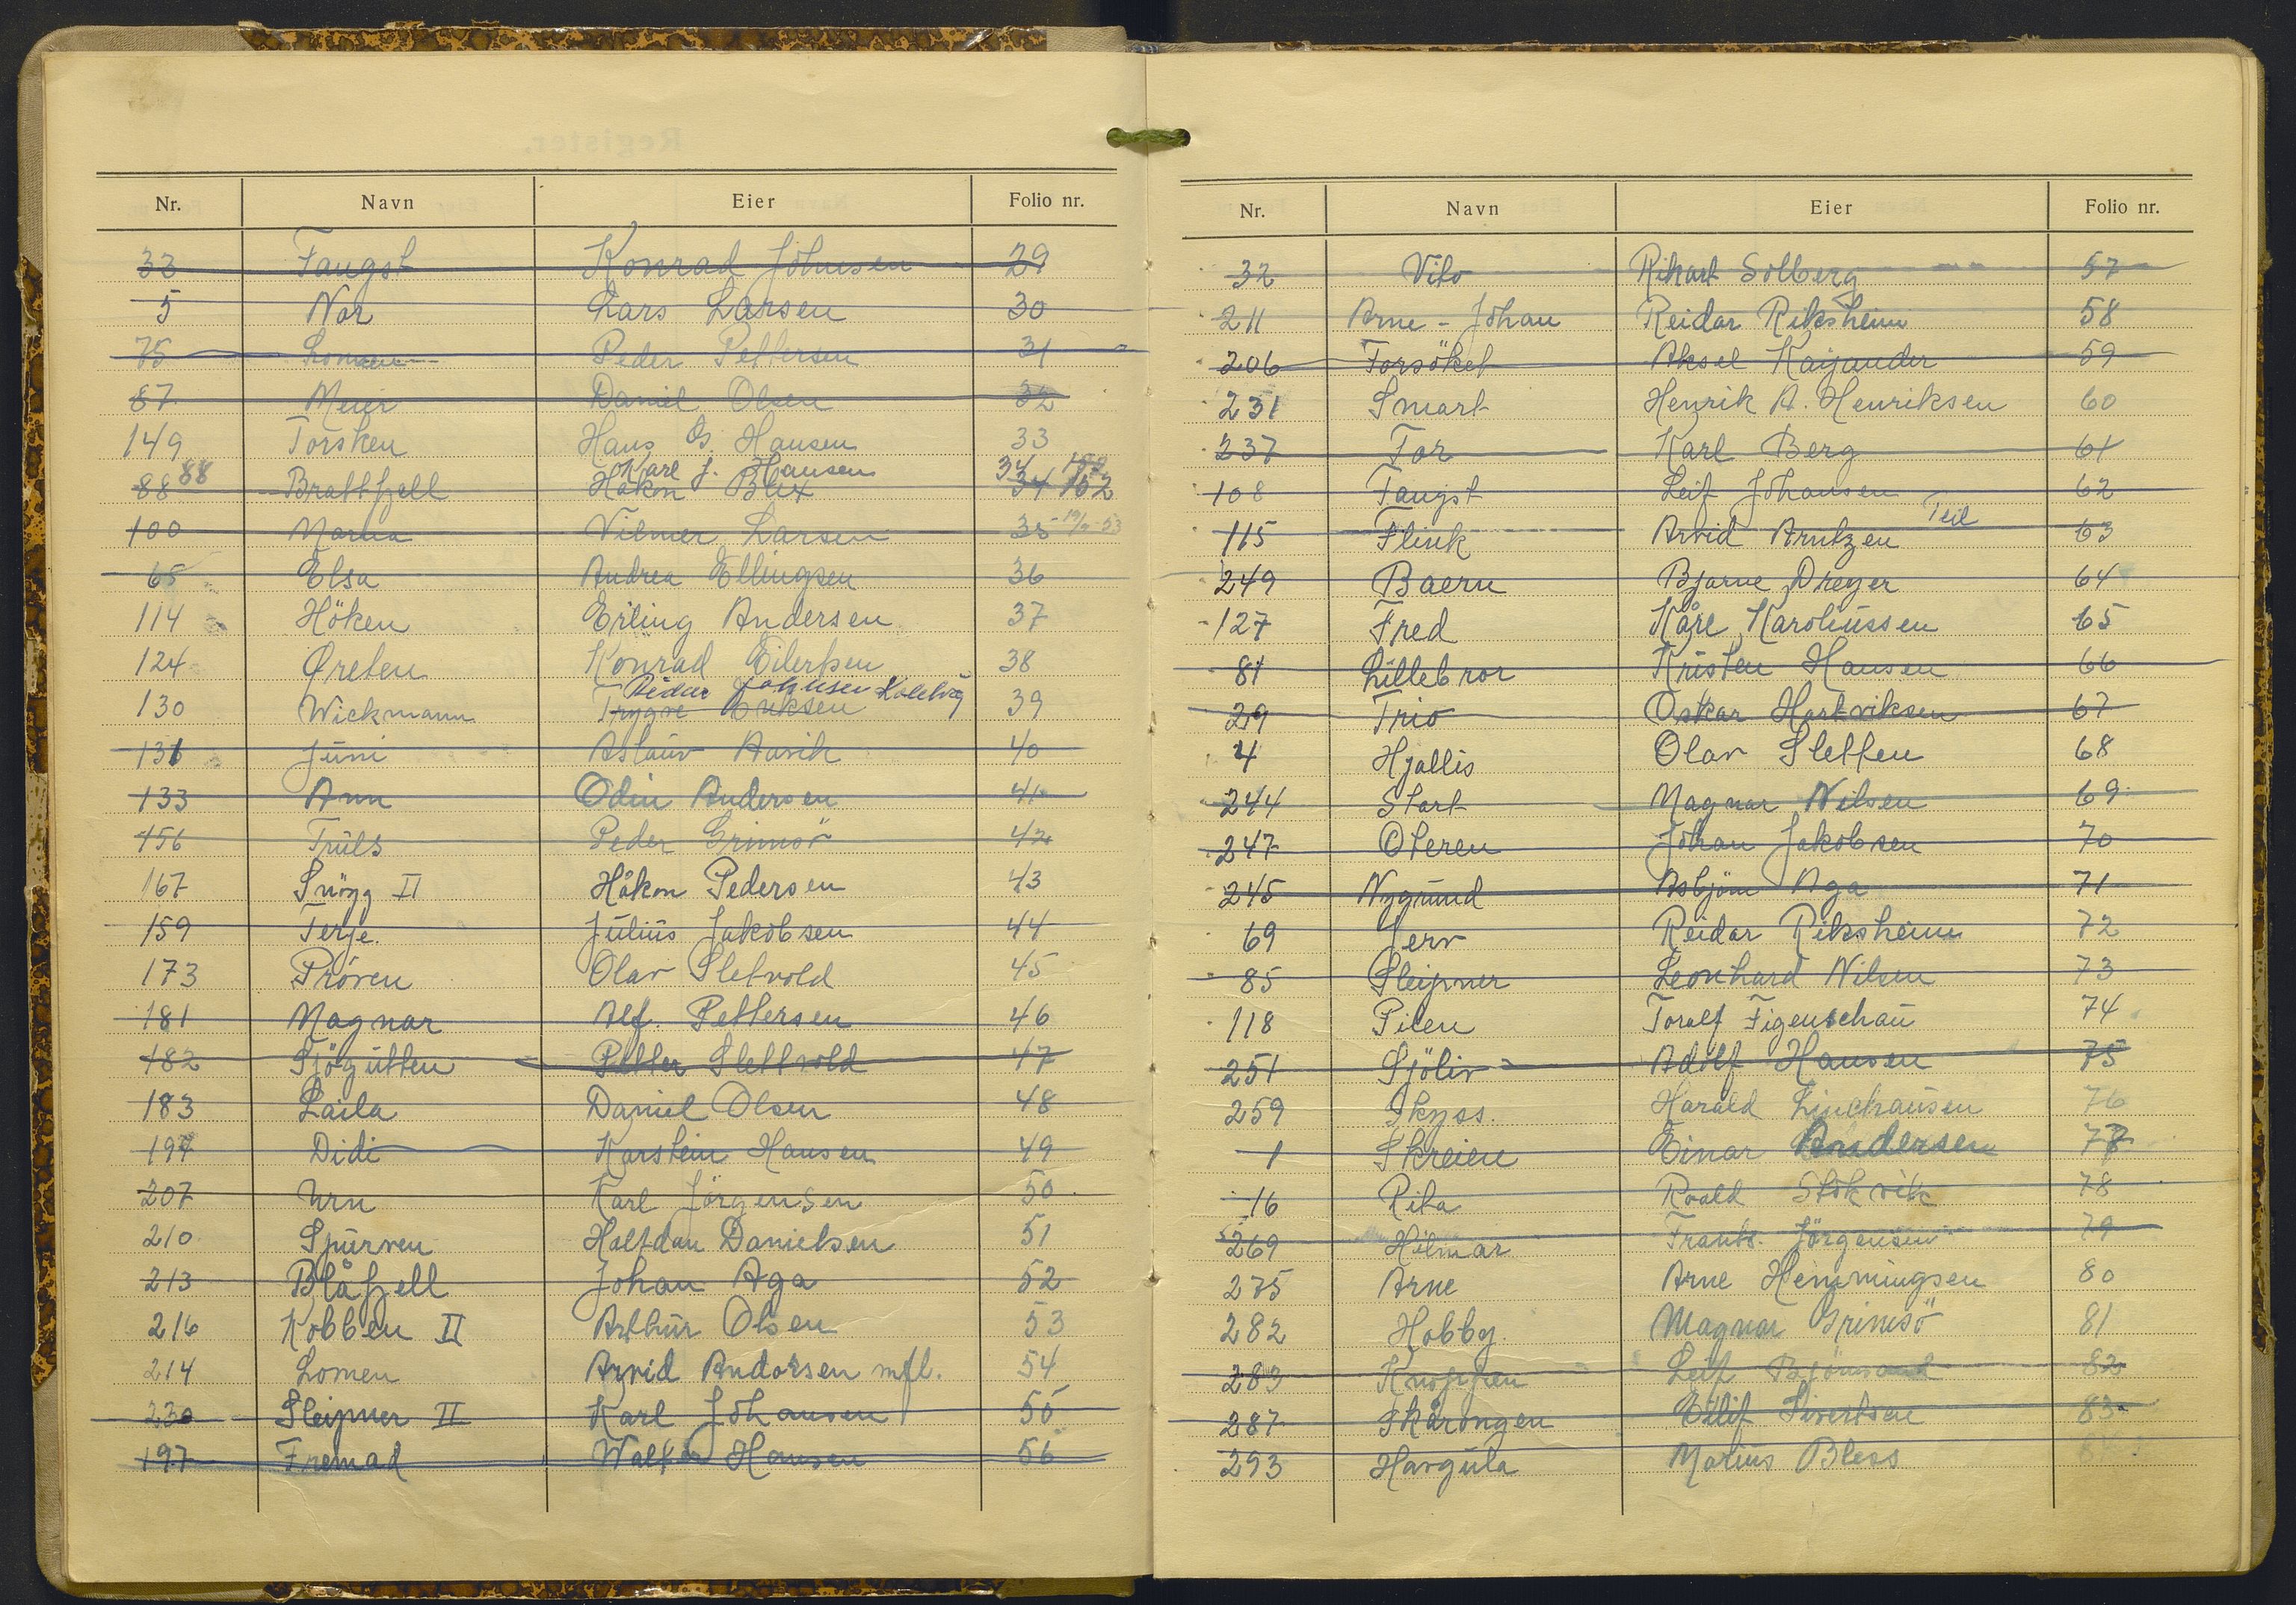 Nr. Navn Eier Folio nr.
33 Fangst Konrad Johnsen 29
5 Nor Lars Larsen 30
75 Lomen Peder Pettersen 31
87 Meier Daniel Olsen 32
149 Torsken Hans G. Hansen 33
88 Karl J. Hansen 34 102
88 Brattfjell Håkon Blix 34 102
100 Marna Vilmer Larsen 35
65 Elsa Andrea Ellingsen 36
114 Höken Erling Andersen 37
124 Øreten Konrad Eilertsen 38
Reidar Johnsen
130 Wickmann Trygve Eriksen 39
131 Juni Aslaur Aarik 40
133 Ann Odin Andersen 41
156 Truls Peder Grimsö 42
167 Snögg II Håkon Pedersen 43
159 Terje. Julius Jakobsen 44
173 Pröven Olav Sletvold 45
181 Magnar Alf. Pettersen 46
182 Sjögutten Petter Slettvold 47
183 Laila Daniel Olsen 48
197 Didi Karstein Hansen 49
207 Urn Karl Jörgensen 50
210 Spurven Halfdan Danielsen 51
213 Blåfjell Johan Aga 52
216 Kobben II Arthur Olsen 53
214 Lomen Arvid Andorsen mfl. 54
230 Sleipner II Karl Johansen 55
197 Fremad Walter Hansen 56
Nr. Navn Eier Folio nr.
32 Vito Rikart Solberg 57
211 Arne - Johan Reidar Riksheim 58
206 Forsöket Aksel Kajander 59
231 Smart Henrik A. Henriksen 60
237 Tor Karl Berg 61
108 Fangst Leif Johansen 62
Teil
115 Flink Arvid Arntzen 63
249 Baern Bjarne Dreyer 64
127 Fred Kåre Karoliussen 65
81 Lillebror Kristen Hansen 66
29 Trio Oskar Hartviksen 67
4 Hjallis Olav Sletten 68
244 Start Magnar Nilsen 69
247 Oteren Johan Jakobsen 70
245 Nygrund Asbjörn Aga 71
69 Jerv Reidar Riksheim 72
85 Sleipner Leonhard Nilsen 73
118 Pilen Toralf Figenschau 74
251 Sjöliv Adolf Hansen 75
259 Skyss. Harald Linchausen 76
1 Skreien Einar Andersen 77
16 Rita Roald Stokvik 78
269 Hilmar Frants. Jörgensen 79
275 Arne Arne Hemmingsen 80
282 Hobby. Magnar Grimsö 81
283 Knoppen Leif Björnsand 82
287 Skårongen Eilif Sivertsen 83
293 Havgula Marius Bless